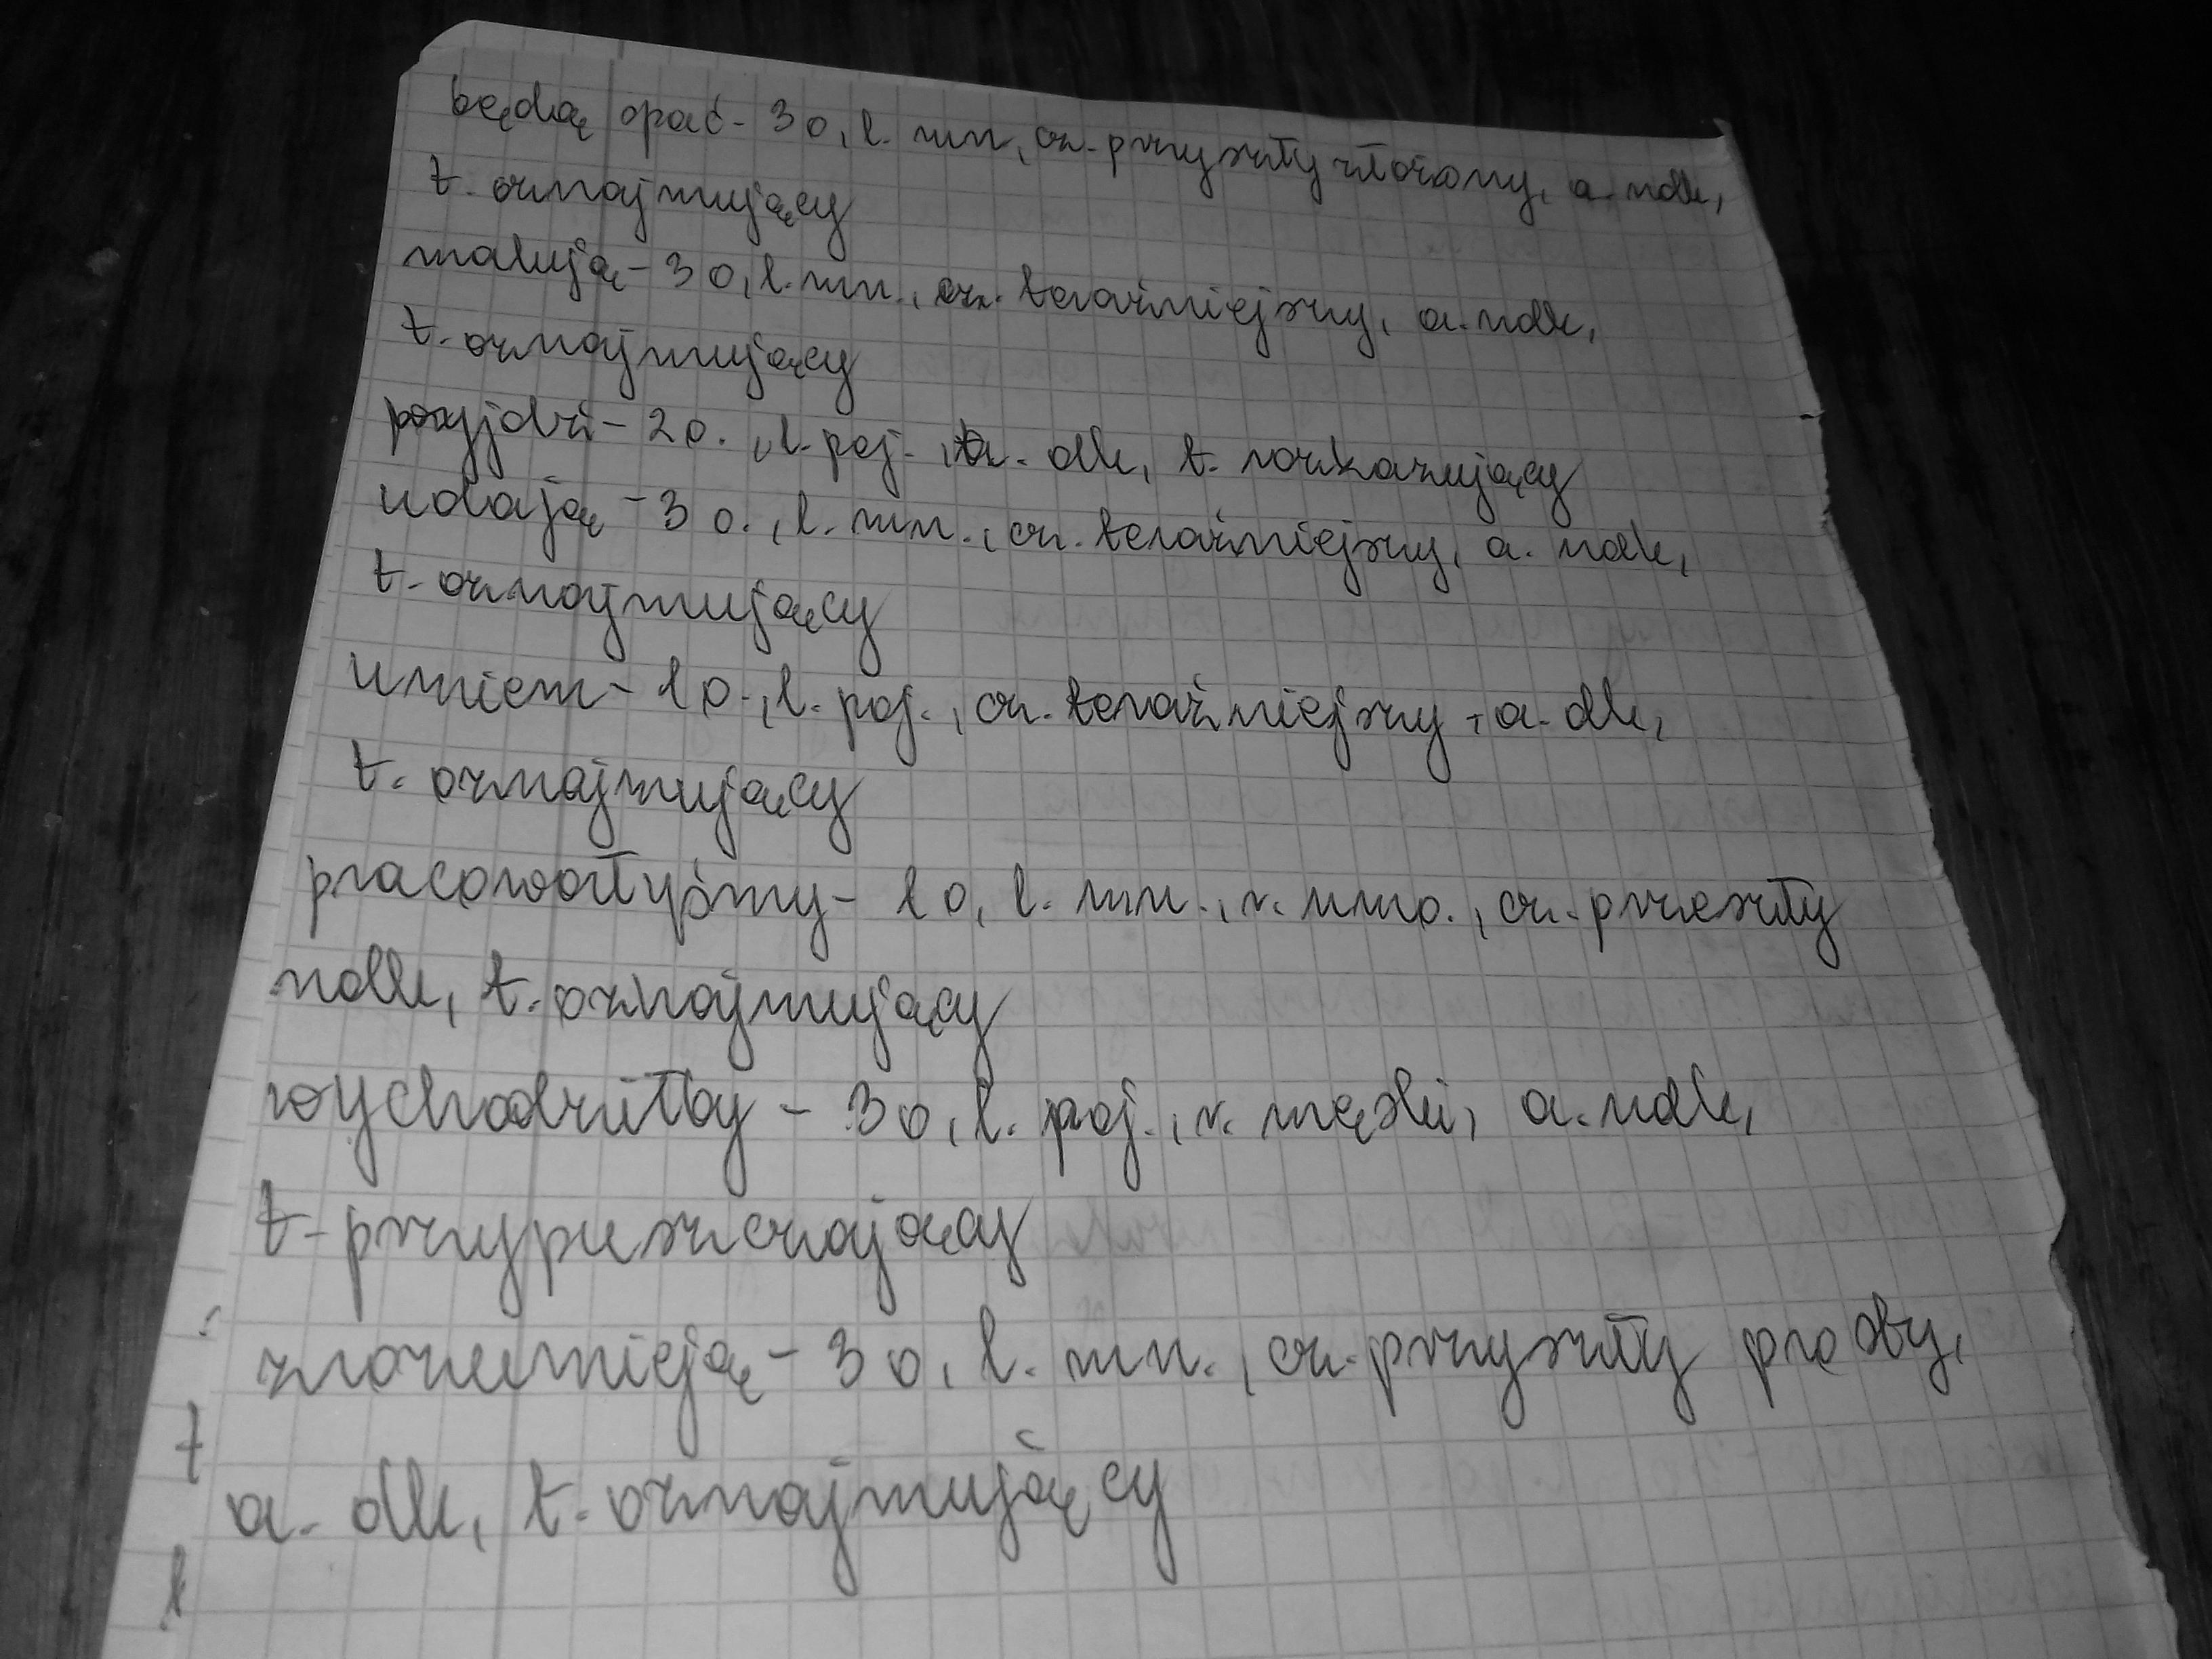 będą spać - 3 o, l. mn, cz. przyszły złożony, a. ndk,
t. oznajmujący
malują - 3 o, l. mn., cz. teraźniejszy, a. ndk,
t. oznajmujący
przyjdzi - 2 o., l. poj., a. dk, t. rozkazujący
udają - 3 o., l. mn., cz. teraźniejszy, a. ndk,
t. oznajmujący
umiem - 1 o., l. poj., cz. teraźniejszy, a. dk,
t. oznajmujący
pracowałyśmy - 1 o, l. mn., r. nmo., cz. przeszły
ndk, t. oznajmujący
wychodziłby - 3 o, l. poj., r. męski, a. ndk,
t. przypuszczający
zrozumieją - 3 o, l. mn., cz. przyszły prosty,
a. dk, t. oznajmujący